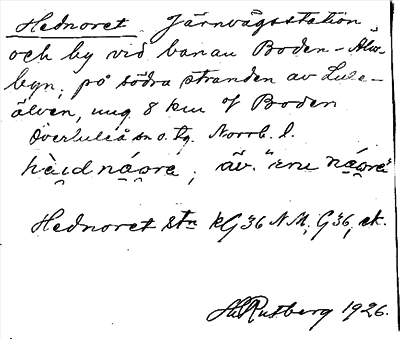 Hednoret Järnvägsstation
och by vid banan Boden - Älvs-
byn, på södra stranden av Lule-
älven, ung 8 km of Boden
Överluleå sn o. tg. Norrb. l.
hèidnåɷrə, äv. "enu nåɷrə"
Hednoret stn kG36 NM, G36, ek.
H. Rutberg 1926.